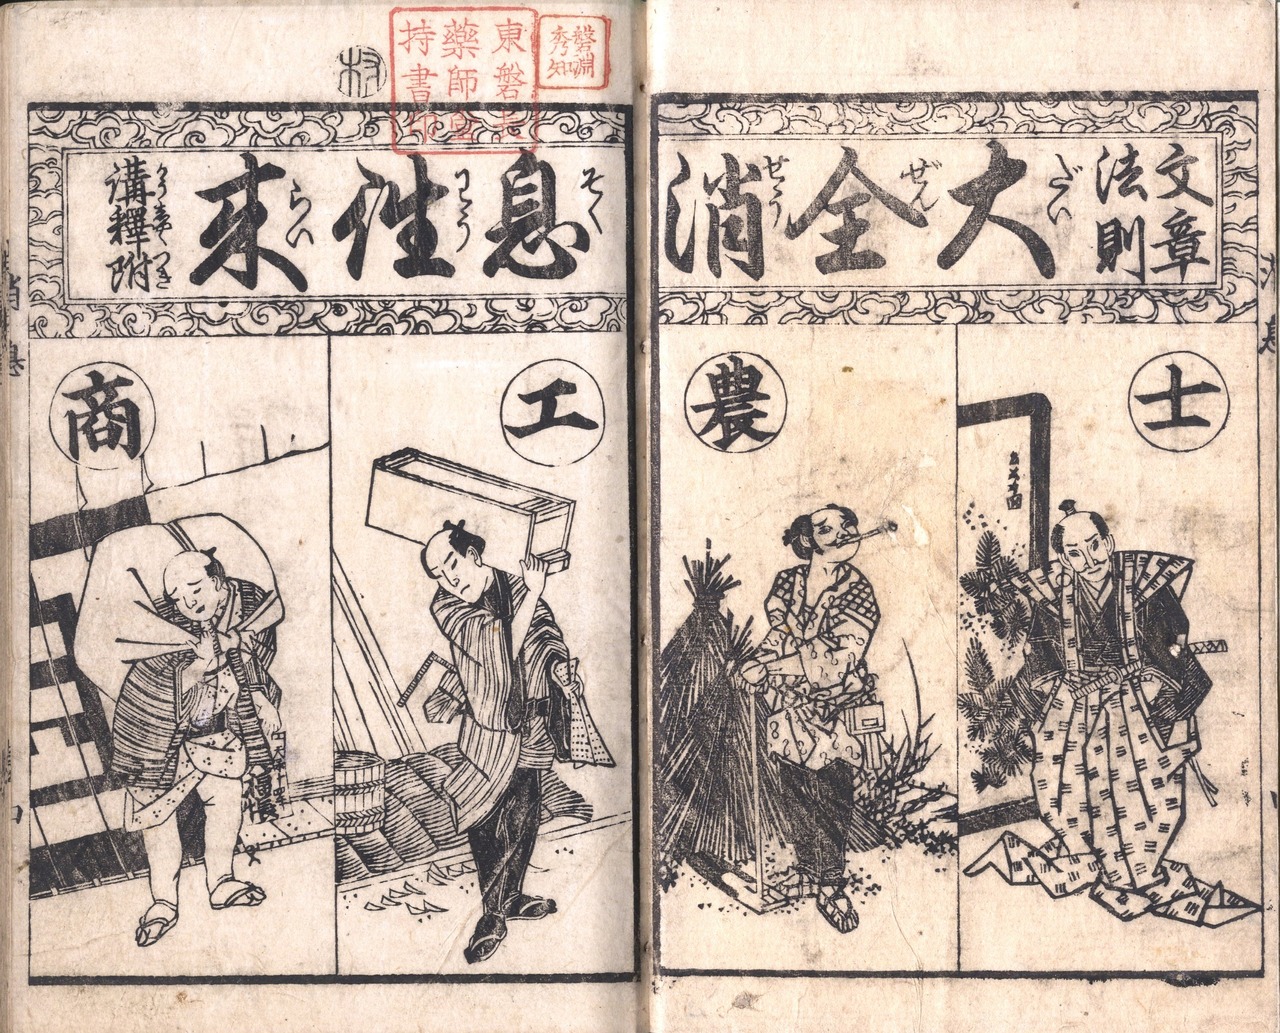 文章
法則
大全消
だい
ぜん
せう
息徃来
そく
わう
らい
講釋附
かうしやくつき
士
農
工
商
東磐井
藥師堂
持書印
磐渊
秀知